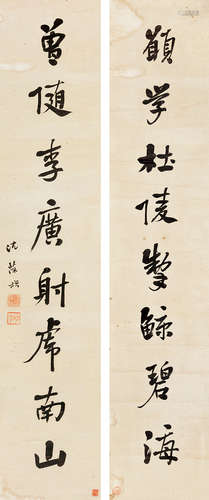 願学杜陵掣鯨碧海
曾随李廣射虎南山
沈葆楨